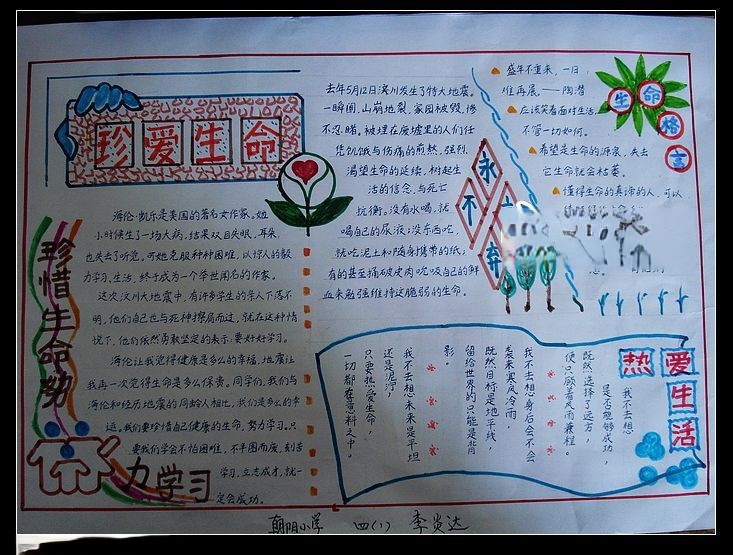 珍爱生命
海伦·凯尔是美国的著名女作家。她
小时候生了一场大病，结果双目失眼，耳朵
也失去了听觉，可她克服种种困难，以惊人的毅
力学习、生活，终于成为一个举世闻名的作家。
这次汶川大地震中，有许多学生的亲人下落不
明，他们自己也与死神擦肩而过，就在这种情
况下，他们依然勇敢坚定的表示：要好好学习。
海伦让我觉得健康是多么的幸福，地震让
我再一次觉得生命是多么保贵。同学们，我们与
海伦和经历地震的同龄人相比，我们是多么的幸
运。我们要珍惜自己健康的生命，努力学习。只
要我们学会不怕困难，不半图而废，刻苦
学习，立志成才，就一
定会成功。
珍惜生命努
力学习
去年5月12日汶川发生了特大地震。
一瞬间，山崩地裂，家园被毁，惨
不忍睹。被埋在废墟里的人们任
凭饥饿与伤痛的煎熬，强烈
渴望生命的延续，树起生
活的信念，与死亡
抗衡。没有水喝，就
喝自己的尿液；没东西吃，
就吃泥土和随身携带的纸；
有的甚至搞破皮肉吮吸自己的鲜
血来勉强维持这脆弱的生命。
永不放弃
生命格言
盛年不重来，一日
难再晨。——陶潜
应该笑着面对生活，
不管一切如何。
希望是生命的源泉，失去
它生命就会枯萎。
懂得生命的真谛的人，可以
热爱生活
我不去想
是否能够成功，
既然选择了远方，
便只顾着风雨兼程。
我不去想身后会不会
袭来寒风冷雨
既然目标是地平线，
留给世界的只能是背
影。
我不去想未来是平坦
还是泥泞，
只要热爱生命，
一切都在意料之中。
朝阳小学 四(1) 李贵达